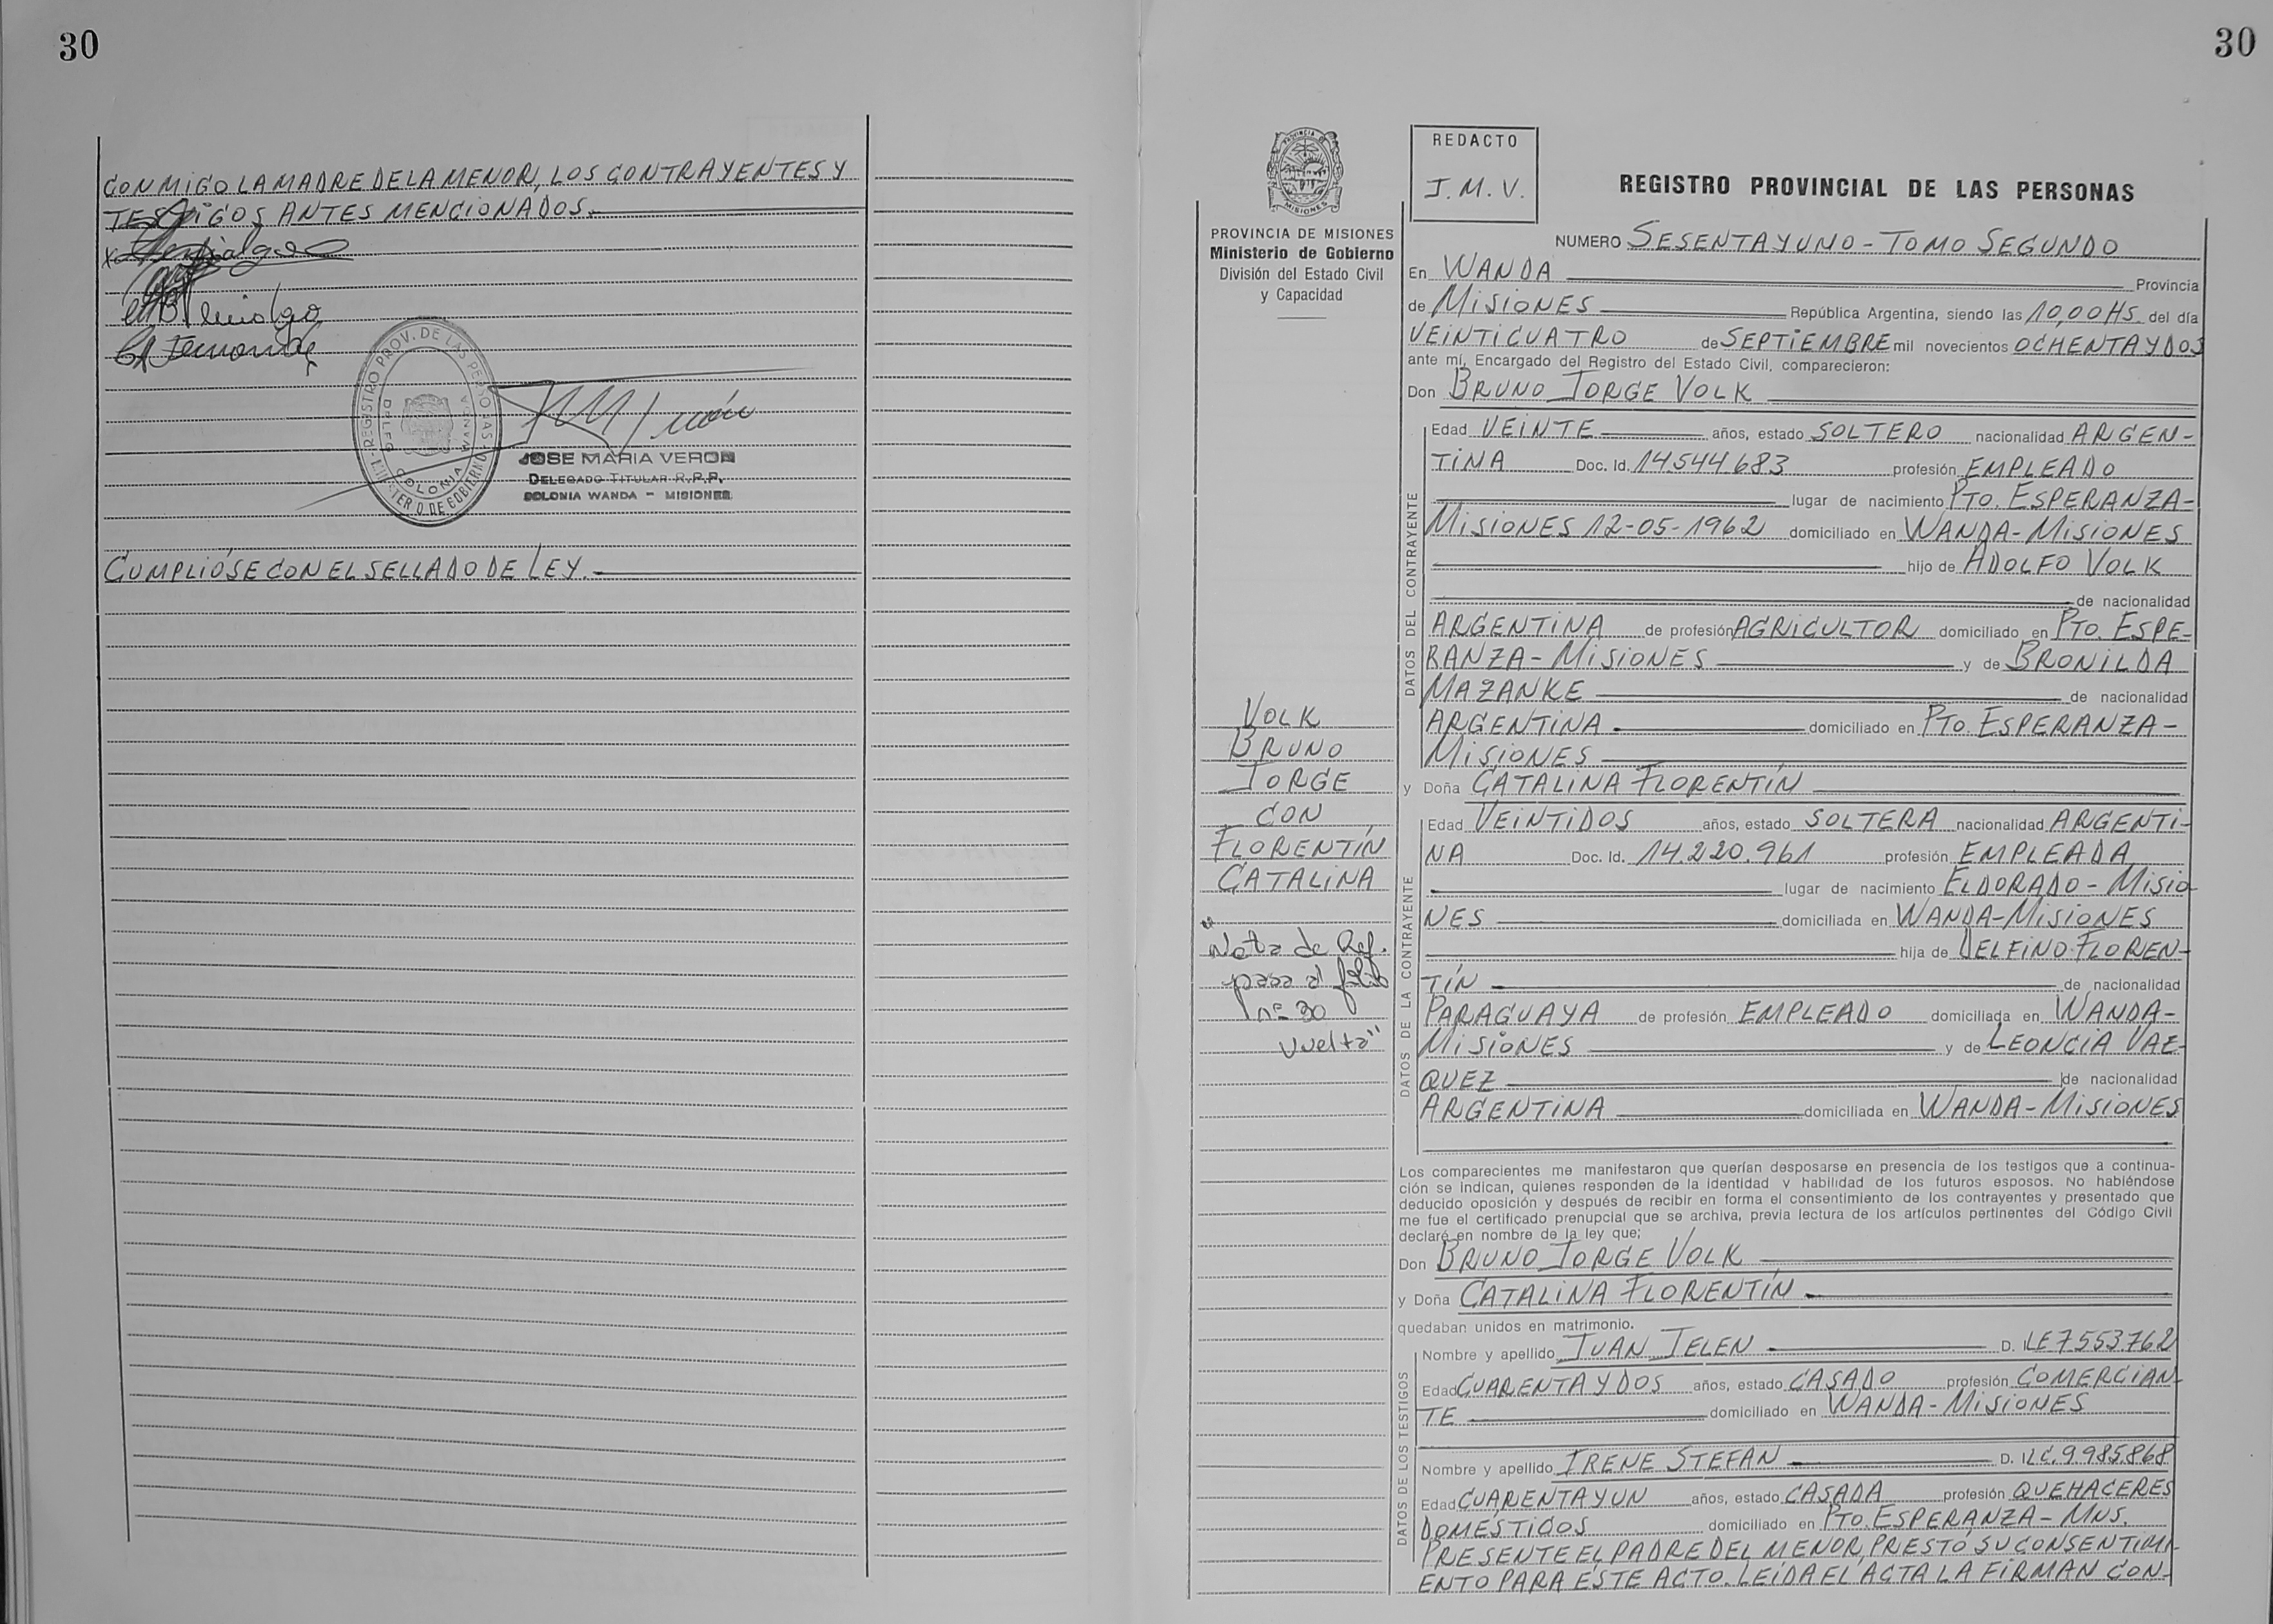 30
CONMIGO LA MADRE DE LA MENOR, LOS CONTRAYENTES Y
TESTIGOS ANTES MENCIONADOS.
REGISTRO PROV. DE LAS PERSONAS
MINISTERIO DE GOBIERNO
DELEG.
COLONIA WANDA
JOSE MARIA VERON
DELEGADO TITULAR R.P.P.
COLONIA WANDA - MISIONES
CUMPLIÓSE CON EL SELLADO DE LEY.
30
PROVINCIA DE MISIONES
Ministerio de Gobierno
División del Estado Civil
y Capacidad
VOLK
BRUNO
JORGE
CON
FLORENTÍN
CATALINA
"Nota de Ref.
pasa al folio
nº 30
vuelta"
REDACTO
J.M.V.
REGISTRO PROVINCIAL DE LAS PERSONAS
NUMERO SESENTA Y UNO - TOMO SEGUNDO
En WANDA Provincia
de MISIONES República Argentina, siendo las 10,00 HS. del día
VEINTICUATRO de SEPTIEMBRE mil novecientos OCHENTA Y DOS
ante mí, Encargado del Registro del Estado Civil, comparecieron:
Don BRUNO JORGE VOLK
DATOS DEL CONTRAYENTE
Edad VEINTE años, estado SOLTERO nacionalidad ARGEN-
TINA Doc. Id. 14.544.683 profesión EMPLEADO
lugar de nacimiento PTO. ESPERANZA-
MISIONES 12-05-1962 domiciliado en WANDA-MISIONES
hijo de ADOLFO VOLK
de nacionalidad
ARGENTINA de profesión AGRICULTOR domiciliado en PTO. ESPE-
RANZA-MISIONES y de BRONILDA
MAZANKE de nacionalidad
ARGENTINA domiciliado en PTO. ESPERANZA-
MISIONES
y Doña CATALINA FLORENTÍN
DATOS DE LA CONTRAYENTE
Edad VEINTIDOS años, estado SOLTERA nacionalidad ARGENTI-
NA Doc. Id. 14.220.961 profesión EMPLEADA
lugar de nacimiento ELDORADO-MISIO
NES domiciliada en WANDA-MISIONES
hija de DELFINO FLOREN-
TÍN de nacionalidad
PARAGUAYA de profesión EMPLEADO domiciliada en WANDA-
MISIONES y de LEONCIA VAZ-
QUEZ de nacionalidad
ARGENTINA domiciliada en WANDA-MISIONES
Los comparecientes me manifestaron que querían desposarse en presencia de los testigos que a continua-
ción se indican, quienes responden de la identidad y habilidad de los futuros esposos. No habiéndose
deducido oposición y después de recibir en forma el consentimiento de los contrayentes y presentado que
me fue el certificado prenupcial que se archiva, previa lectura de los artículos pertinentes del Código Civil
declaré en nombre de la ley que;
Don BRUNO JORGE VOLK
y Doña CATALINA FLORENTÍN
quedaban unidos en matrimonio.
DATOS DE LOS TESTIGOS
Nombre y apellido JUAN JELEN D. I. LE 7553.762
Edad CUARENTA Y DOS años, estado CASADO profesión COMERCIAN-
TE domiciliado en WANDA-MISIONES
Nombre y apellido IRENE STEFAN D. I. LC. 9.985.868
Edad CUARENTA Y UN años, estado CASADA profesión QUEHACERES
DOMÉSTICOS domiciliado en PTO. ESPERANZA-MNS.
PRESENTE EL PADRE DEL MENOR, PRESTÓ SU CONSENTIMI-
ENTO PARA ESTE ACTO. LEÍDA EL ACTA LA FIRMAN CON-